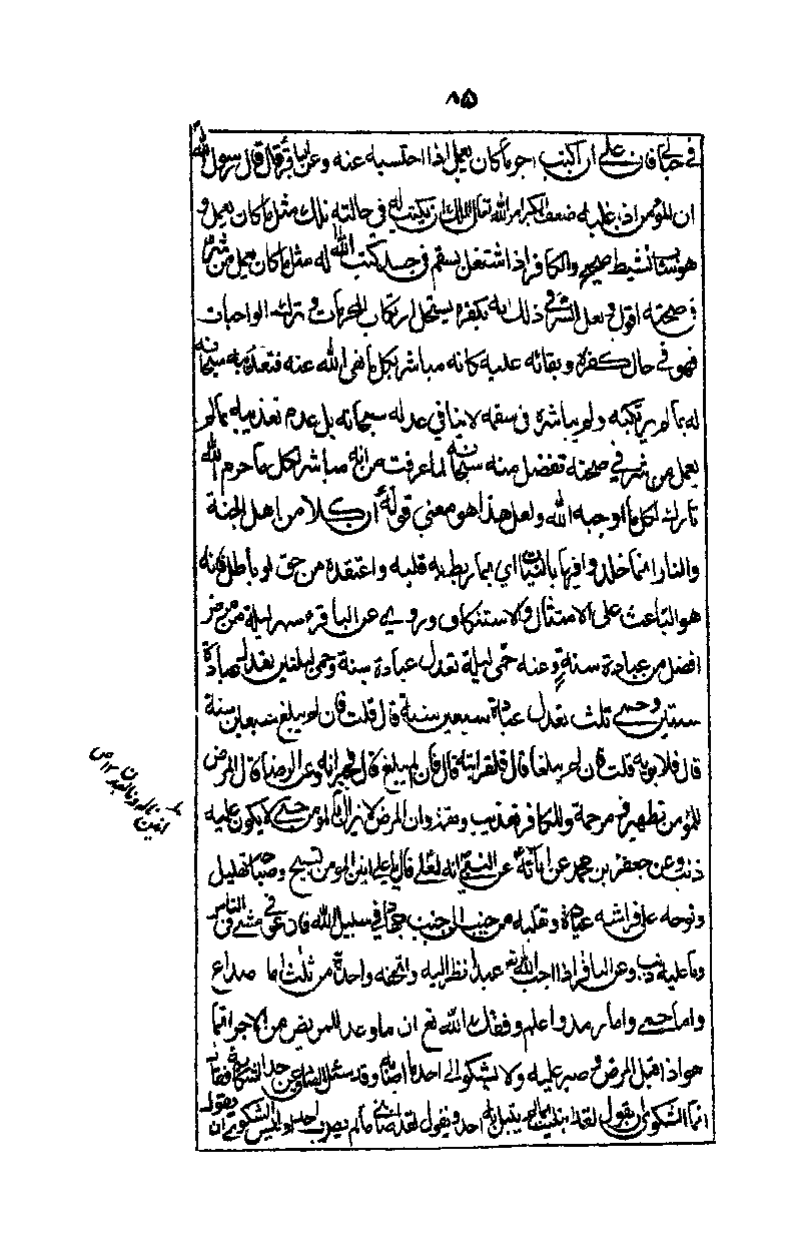 ٨۵
في حبالي فان علي ان اكتب اجر ما كان يعمل اذا احتسبه عنه وعن الباقر قال قال رسول الله
ان المؤمن اذا غلبه ضعف الكبر امر الله تعالى الملك ان يكتب له في حالته تلك مثل ما كان يعمل و
هو شاب نشيط صحيح والكافر اذا اشتغل بسقم في جسده كتب الله له مثل ما كان يعمل من شر
في صحته اقول ولعل السر في ذلك انه بكفره يستحل ارتكاب المحرمات و ترك الواجبات
فهو في حال كفره وبقائه عليه كانه مباشر بكل ما نهى الله عنه فتعذيبه سبحانه
له بما لم يرتكبه ولم يباشره في سقمه لا ينافي عدله سبحانه بل عدم تعذيبه بما لم
يعمل من شر في صحته تفضل منه سبحانه لما عرفت من انه مباشر لكل ما حرم الله
تارك لكل ما اوجبه الله ولعل هذا هو معنى قوله ان كلا من اهل الجنة
والنار انما خلدوا فيها بالنيات اي بما ربط به قلبه واعتقده من حق او باطل فانه
هو الباعث على الامتثال والاستنكاف وروي عن الباقر سهر ليلة من مرض
افضل من عبادة سنة وعنه حمى ليلة تعدل عبادة سنة وحمى ليلتين تعدل عبادة
سنتين وحمى ثلث تعدل عبادة سبعين سنة قال قلت فان لم يبلغ سبعين سنة
قال فلابويه قلت فان لم يبلغا قال فلقرابته قال فان لم يبلغ قال فجيرانه وعن الرضا قال المرض
للمؤمن تطهير ورحمة وللكافر تعذيب ولعنة وان المرض لا يزال بالمؤمن حتى لا يكون عليه
ذنب وعن جعفر بن محمد عن ابائه عن النبي انه لعلي قال يا علي انين المؤمن تسبيح وصياحه تهليل
ونومه على فراشه عبادة وتقلبه من جنب الى جنب جهاد في سبيل الله فان عوفي مشى في الناس
وما عليه ذنب وعن الباقر اذا احب الله عبدا نظر اليه واتحفه واحدة من ثلث اما صداع
واما حمى واما رمد واعلم وفقك الله تع ان ما وعد للمريض من الاجر انما
هو اذا قبل المرض وصبر عليه ولا يشكو الى احد ما اصابه وقد سئل الصادق عن حد الشكاية فقال
انما الشكوى ان يقول لقد ابتليت بما لم يبتل به احد ويقول لقد اصابني ما لم يصب احدا وليس الشكوى ان يقول